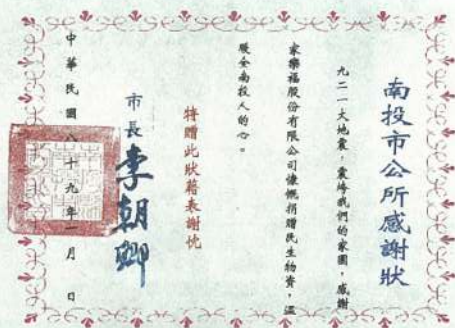 南投市公所感謝狀
九二一大地震，震垮我們的家園，感謝
家樂福股份有限公司慷慨捐贈民生物資，溫
暖全南投人的心。
特贈此狀藉表謝忱
市長李朝卿
中華民國八十九年一月 日